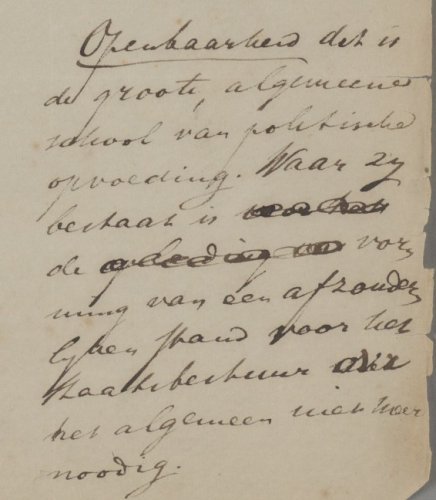 Openbaarheid dit is
de groote, algemeene
school van politische
opvoeding. Waar zy
bestaat is
de vor,
ming van een afzonder,
lyken stand voor het
Staatsbestuur
het algemeen niet meer
noodig.